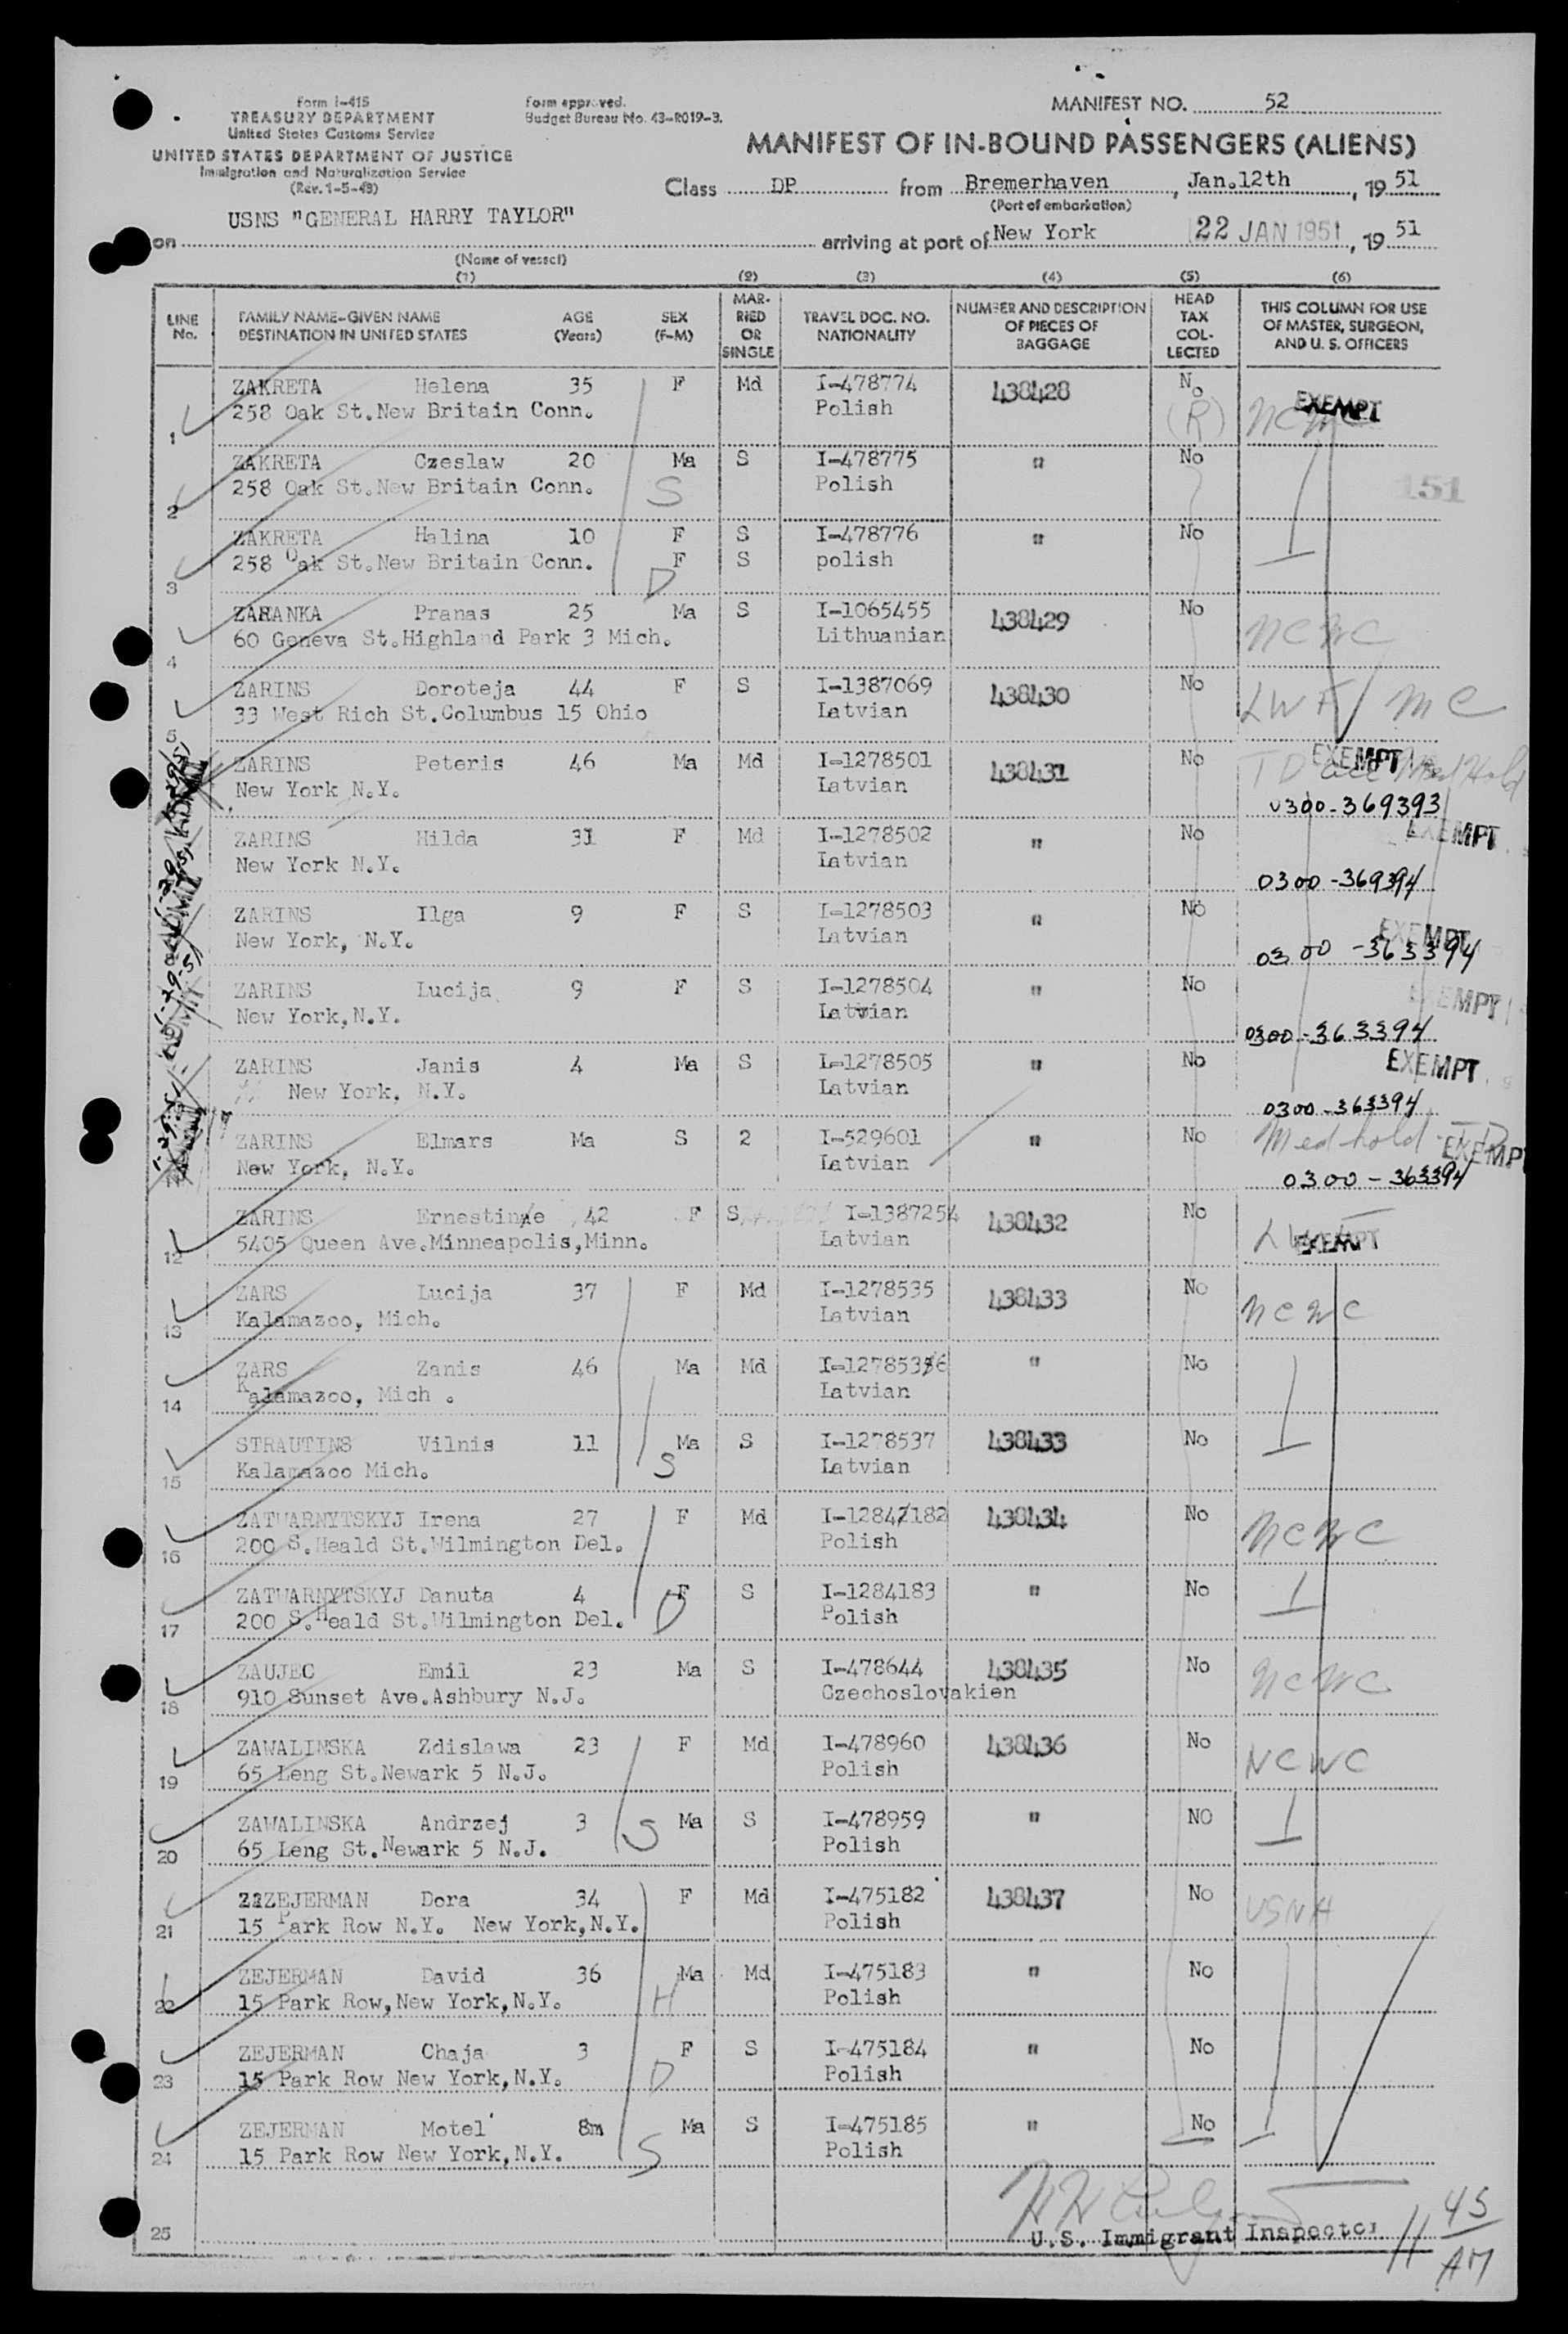 Form I-415
TREASURY DEPARTMENT
United States Customs Service
UNITED STATES DEPARTMENT OF JUSTICE
Immigration and Naturalization Service
(Rev. 1-5-49)
Form approved.
Budget Bureau No. 43-R019-3.
MANIFEST NO. 52
MANIFEST OF IN-BOUND PASSENGERS (ALIENS)
Class DP from Bremerhaven, Jan.12th, 19 51
(Port of embarkation)
on USNS "GENERAL HARRY TAYLOR" arriving at port of New York 22 JAN 1951, 19 51
(Name of vessel)
(1) (2) (3) (4) (5) (6)
LINE No. FAMILY NAME-GIVEN NAME DESTINATION IN UNITED STATES AGE (Years) SEX (F-M) MARRIED OR SINGLE TRAVEL DOC. NO. NATIONALITY NUMBER AND DESCRIPTION OF PIECES OF BAGGAGE HEAD TAX COLLECTED THIS COLUMN FOR USE OF MASTER, SURGEON, AND U. S. OFFICERS
ZAKRETA Helena 35 F Md I-478774 438428 No EXEMPT
1 258 Oak St.New Britain Conn. Polish (R) NCWC
ZAKRETA Czeslaw 20 Ma S I-478775 " No
2 258 Oak St.New Britain Conn. S Polish 151
ZAKRETA Halina 10 F S I-478776 " No
3 258 Oak St.New Britain Conn. F S polish
D
ZARANKA Pranas 25 Ma S I-1065455 438429 No
4 60 Geneva St.Highland Park 3 Mich. Lithuanian NCWC
ZARINS Doroteja 44 F S I-1387069 438430 No
5 33 West Rich St.Columbus 15 Ohio Latvian LWF/MC
ZARINS Peteris 46 Ma Md I-1278501 438431 No EXEMPT Med Hold
New York N.Y. Latvian 0300-369393
ZARINS Hilda 31 F Md I-1278502 " No EXEMPT
New York N.Y. Latvian 0300-369394
ZARINS Ilga 9 F S I-1278503 " No EXEMPT
New York, N.Y. Latvian 0300-363394
ZARINS Lucija 9 F S I-1278504 " No EXEMPT
New York,N.Y. Latvian 0300-363394
ZARINS Janis 4 Ma S I-1278505 " No EXEMPT
New York, N.Y. Latvian 0300-363394
ZARINS Elmars Ma S 2 I-529601 " No Med hold EXEMPT
11 New York, N.Y. Latvian 0300-363394
ZARINS Ernestine 42 F S I-1387254 438432 No
12 5405 Queen Ave.Minneapolis,Minn. Latvian EXEMPT
ZARS Lucija 37 F Md I-1278535 438433 No
13 Kalamazoo, Mich. Latvian NCWC
ZARS Zanis 46 Ma Md I-1278536 " No
14 Kalamazoo, Mich . Latvian
STRAUTINS Vilnis 11 Ma S I-1278537 438433 No
15 Kalamazoo Mich. S Latvian
ZATWARNYTSKYJ Irena 27 F Md I-1284182 438434 No
16 200 S.Heald St.Wilmington Del. Polish NCWC
ZATWARNYTSKYJ Danuta 4 F S I-1284183 " No
17 200 S.Heald St.Wilmington Del. D Polish
ZAUJEC Emil 23 Ma S I-478644 438435 No
18 910 Sunset Ave.Ashbury N.J. Czechoslovakien NCWC
ZAWALINSKA Zdislawa 23 F Md I-478960 438436 No
19 65 Leng St.Newark 5 N.J. Polish NCWC
ZAWALINSKA Andrzej 3 Ma S I-478959 " NO
20 65 Leng St.Newark 5 N.J. S Polish
ZEJERMAN Dora 34 F Md I-475182 438437 No
21 15 Park Row N.Y. New York,N.Y. Polish USNA
ZEJERMAN David 36 Ma Md I-475183 " No
22 15 Park Row,New York,N.Y. H Polish
ZEJERMAN Chaja 3 F S I-475184 " No
23 15 Park Row New York,N.Y. D Polish
ZEJERMAN Motel 8m Ma S I-475185 " No
24 15 Park Row New York,N.Y. S Polish
25 U.S. Immigrant Inspector 11 45 AM